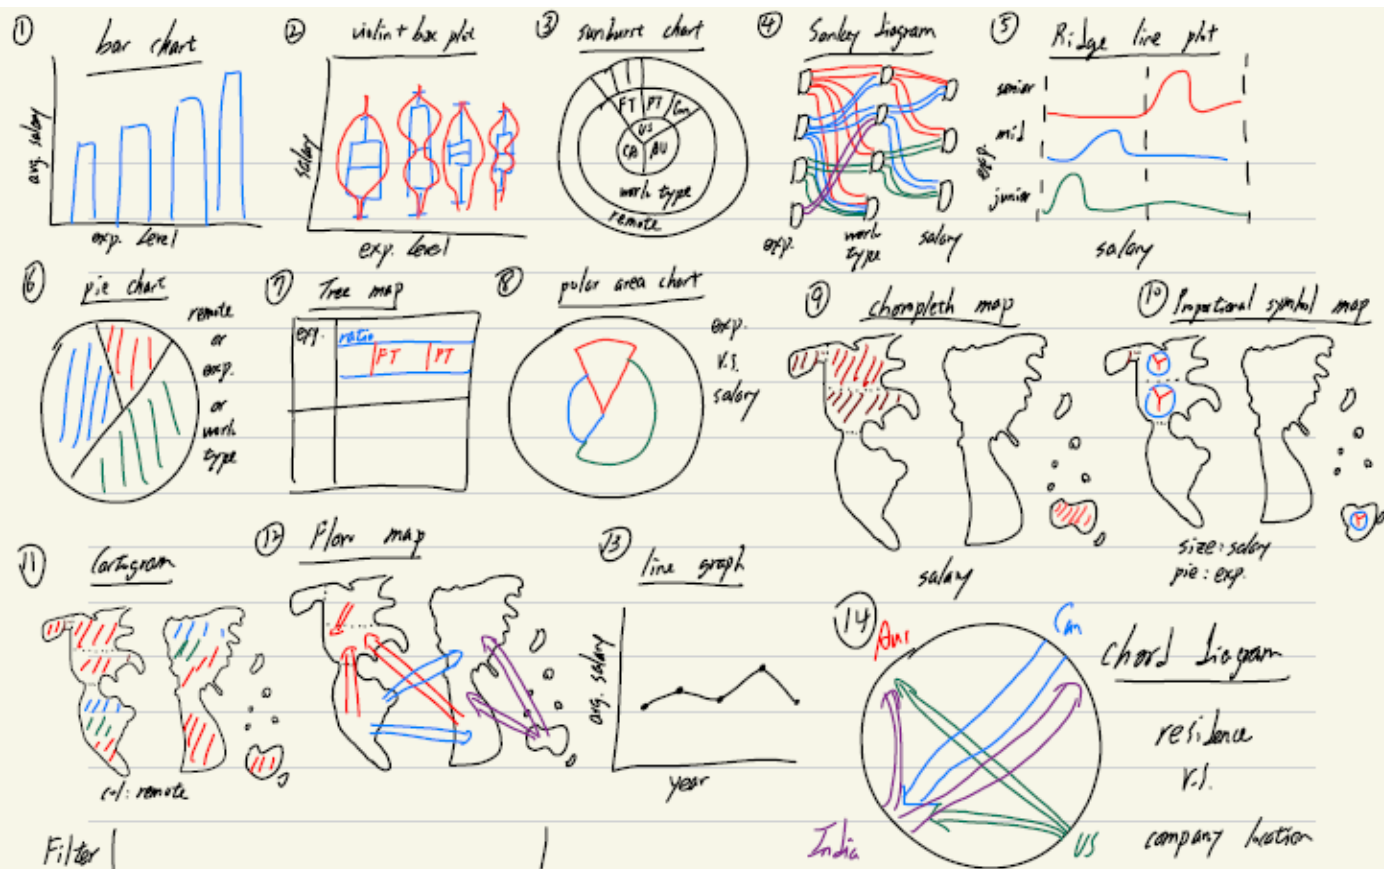 ① bar chart
avg. salary
exp. level
② violin + box plot
salary
exp. level
③ sunburst chart
FT PT Con
US
CA AU
work type
remote
④ Sankey diagram
exp. work type salary
⑤ Ridge line plot
senior
mid
junior
exp.
salary
⑥ pie chart
remote
or
exp.
or
work
type
⑦ Tree map
exp. ratio
FT PT
⑧ polar area chart
exp.
v.s.
salary
⑨ choropleth map
salary
⑩ Proportional symbol map
size: salary
pie: exp.
⑪ Cartogram
col: remote
⑫ Flow map
⑬ line graph
avg. salary
year
⑭ chord diagram
Aus
Can
India
US
residence
v.s.
company location
Filter